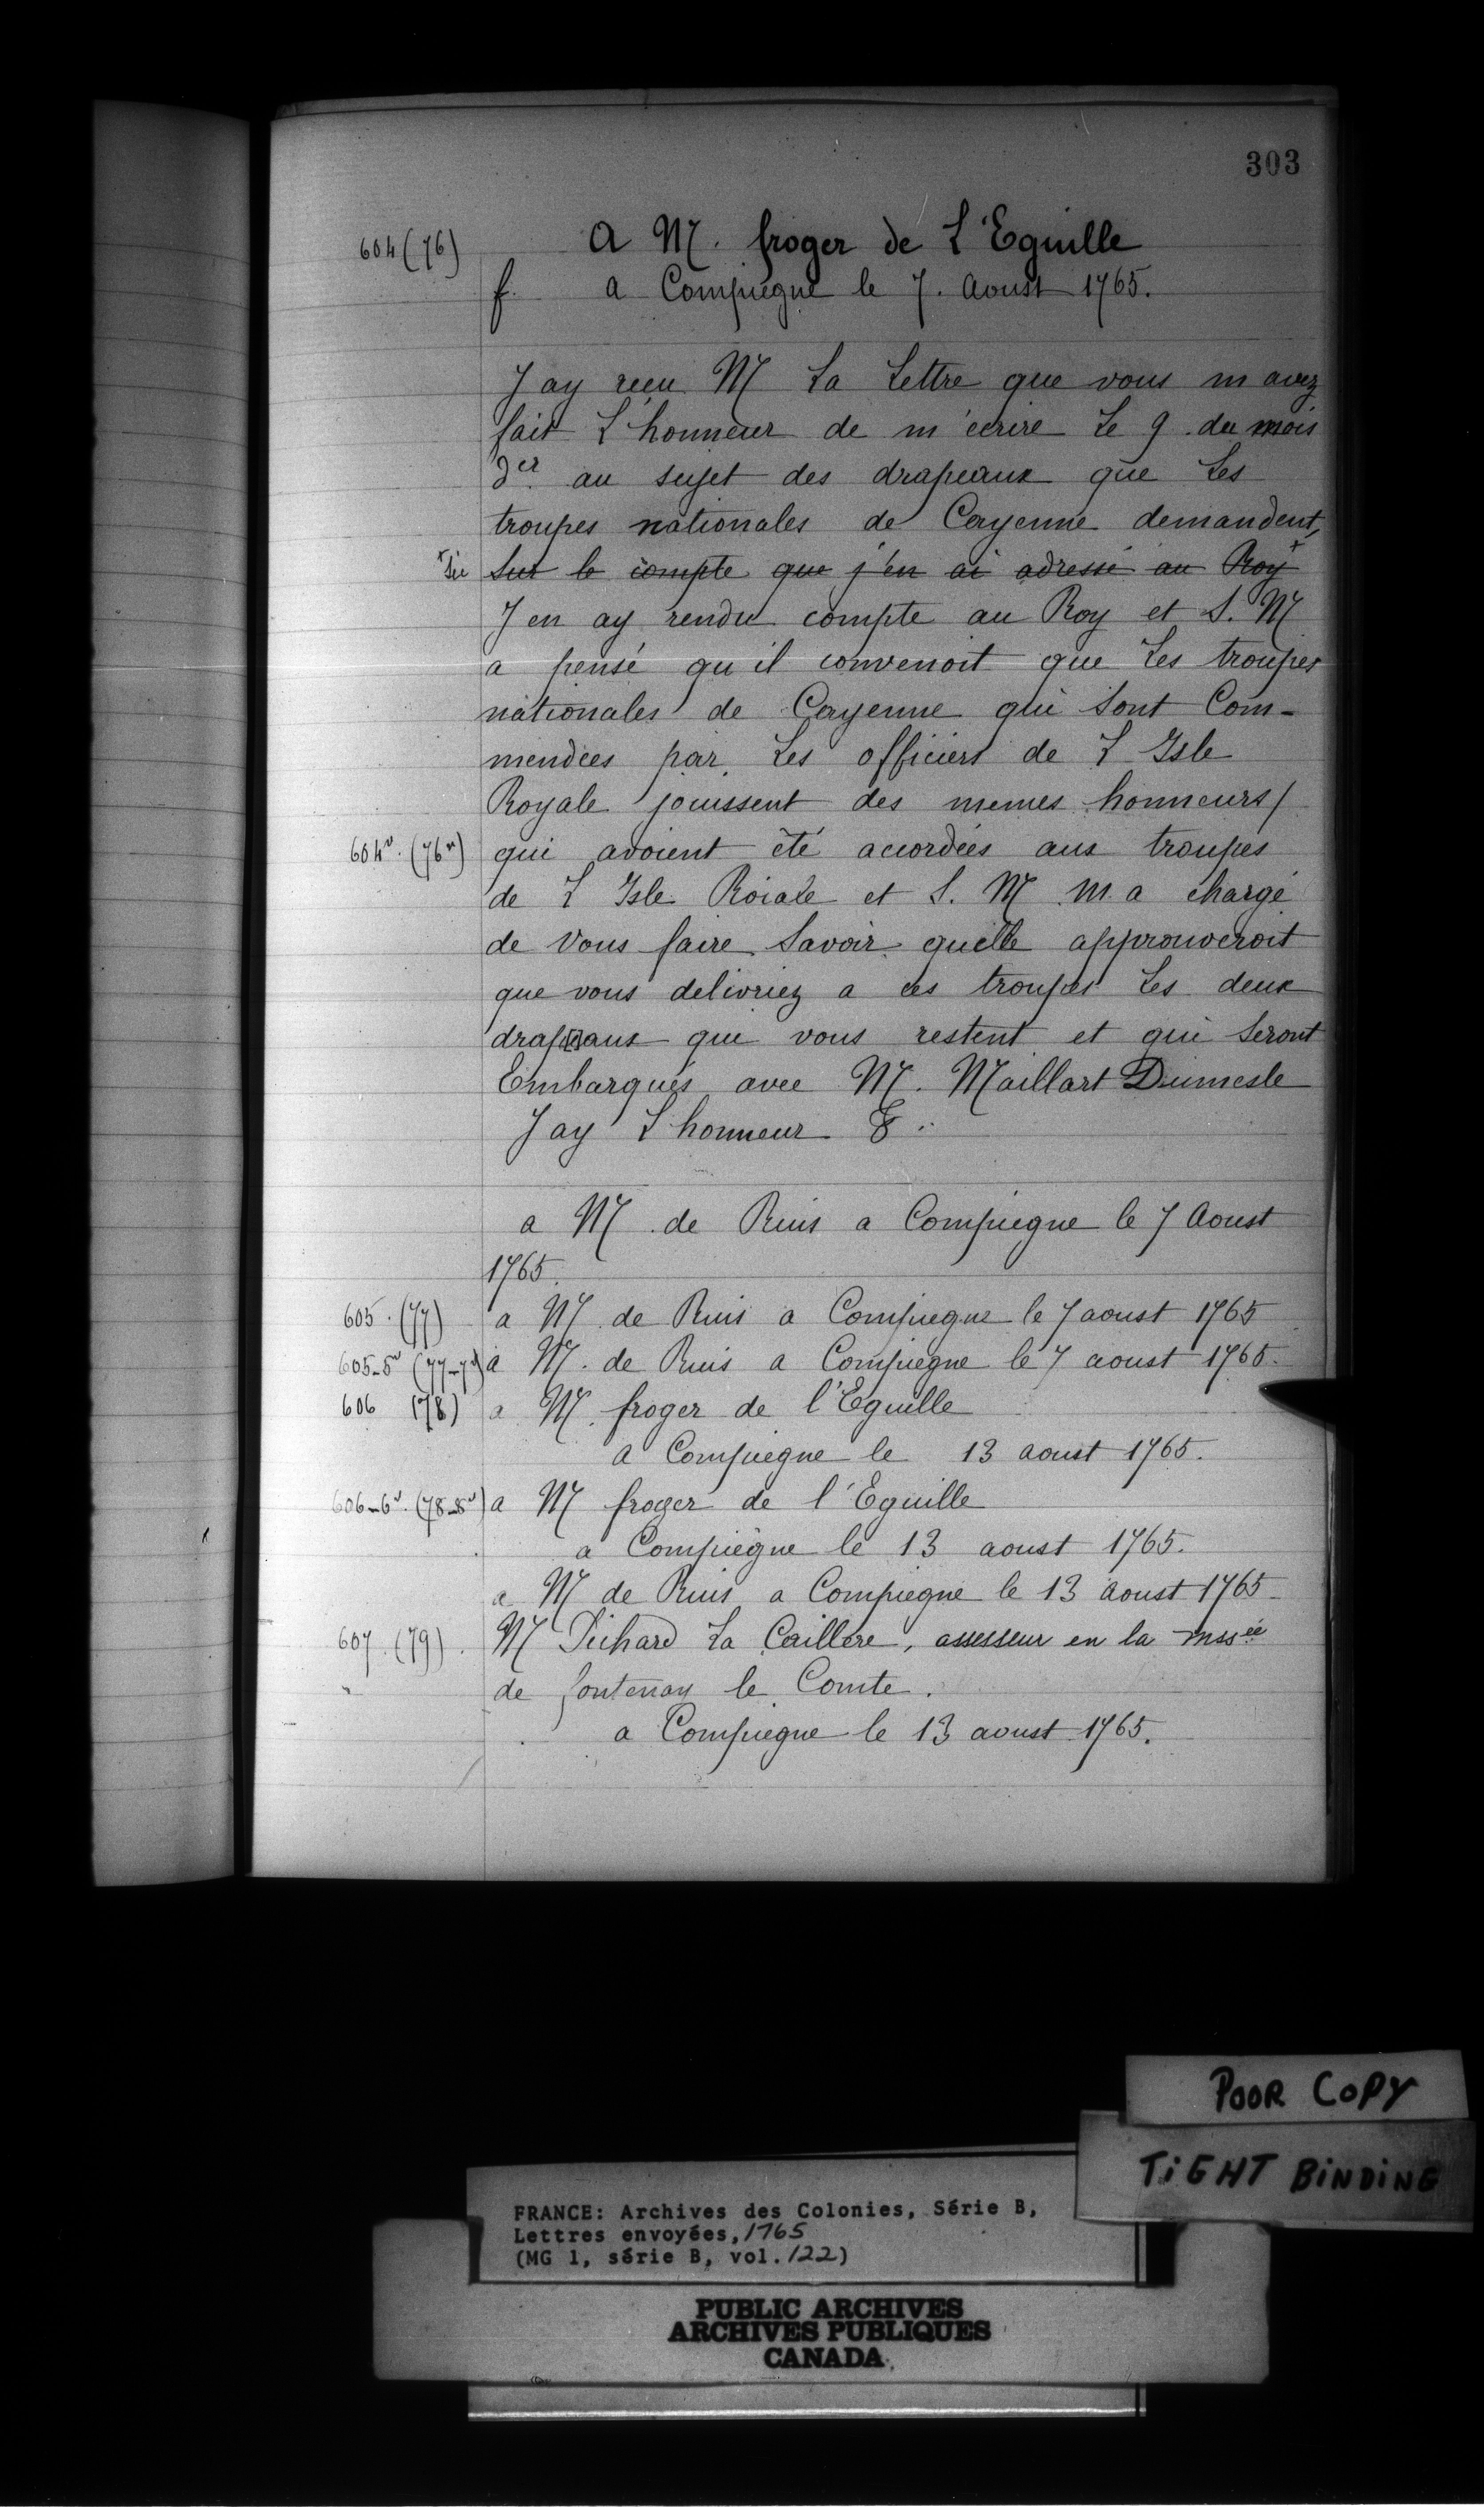 303
604 (76) A M. froger de L'Eguille
f. a Compiegne le 7. Aoust 1765.
J ay reçu M La Lettre que vous m avez
fait L'honneur de m'écrire Le 9 du mois
der au sujet des drapeaux que Les
troupes nationales de Cayenne demandent,
Sur le compte que j'en ai adressé au Roy
J en ay rendu compte au Roy et S. M
a pensé qu il convenoit que Les troupes
nationales de Cayenne qui sont Com-
mendées par Les officiers de L Isle
Royale jouissent des memes honneurs/
604v. (76v) qui avoient été accordées aux troupes
de L Isle Roiale et S. M m a chargé
de Vous faire Savoir quelle approuveroit
que vous delivriez a ces troupes Les deux
drap[e]aux qui vous restent et qui Seront
Embarqués avec M. Maillart Dumesle
J ay L'honneur &
a M de Ruis a Compiegne le 7 Aoust
1765.
605. (77) a M de Ruis a Compiegne le 7 aoust 1765
605-5v (77-7v) a M. de Ruis a Compiegne le 7 aoust 1765.
606 (78) a M. froger de l'Eguille
a Compiegne le 13 aoust 1765.
606-6v. (78-8v) a M froger de l'Eguille
a Compiègne le 13 aoust 1765.
a M de Ruis a Compiegne le 13 Aoust 1765
607. (79). M Pichard La Caillere, assesseur en la mssée
de fontenay le Comte.
a Compiegne le 13 aoust 1765.
POOR COPY
TIGHT BINDING
FRANCE: Archives des Colonies, Série B,
Lettres envoyées, 1765
(MG 1, série B, vol. 122)
PUBLIC ARCHIVES
ARCHIVES PUBLIQUES
CANADA